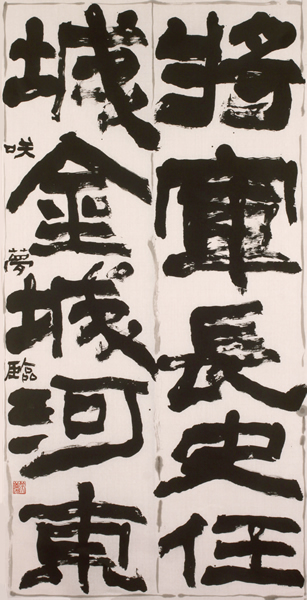 將軍長史任
城金城河東
咲夢臨